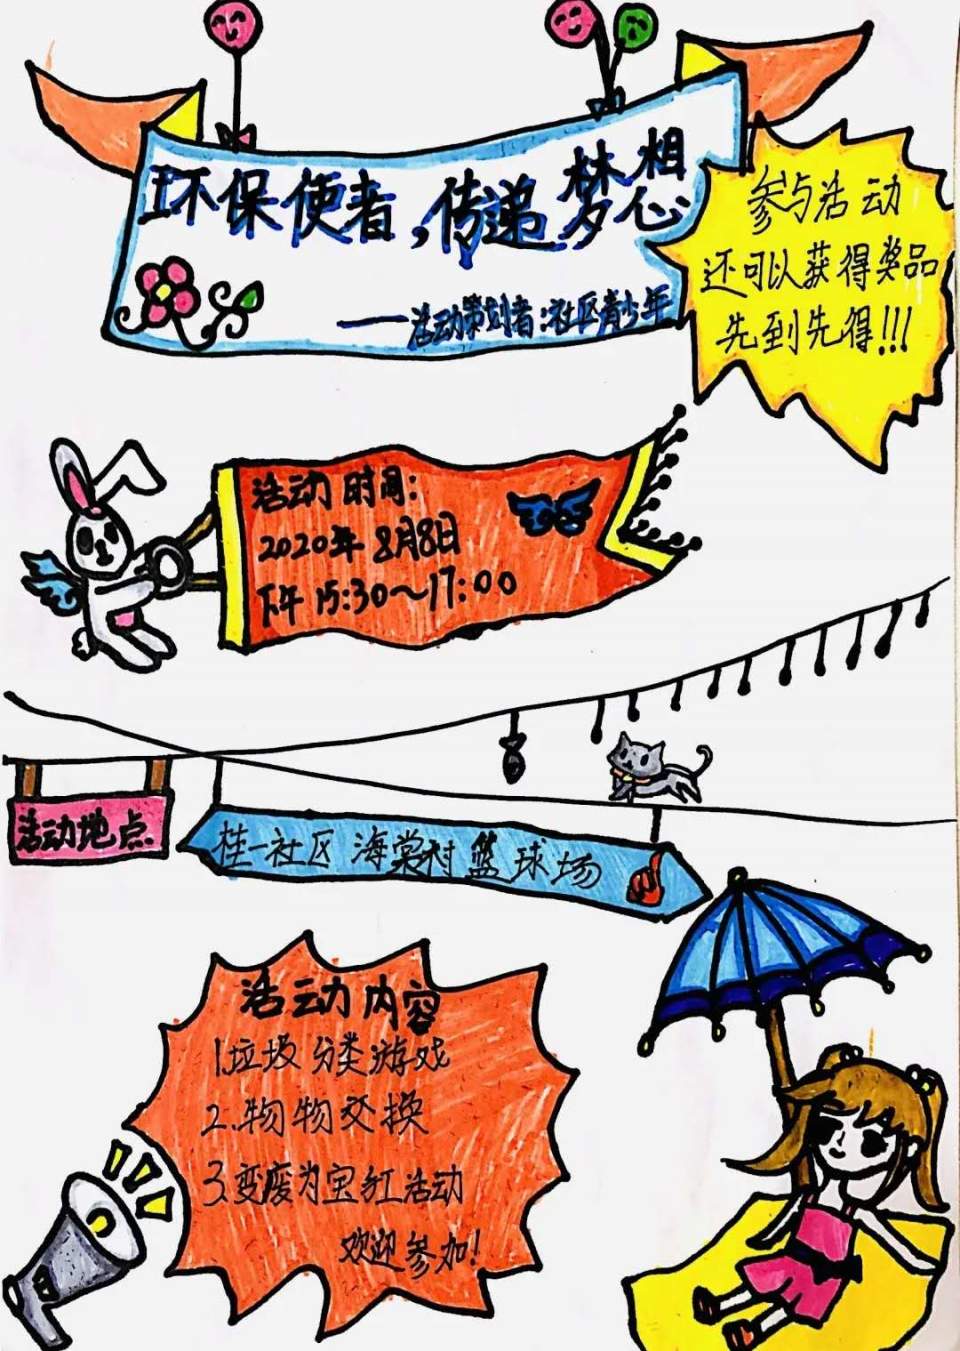 环保使者,传递梦想
——活动策划者:社区青少年
参与活动
还可以获得奖品
先到先得!!!
活动时间:
2020年8月8日
下午15:30~17:00
活动地点
桂一社区海棠村篮球场
活动内容
1.垃圾分类游戏
2.物物交换
3.变废为宝手工活动
欢迎参加!